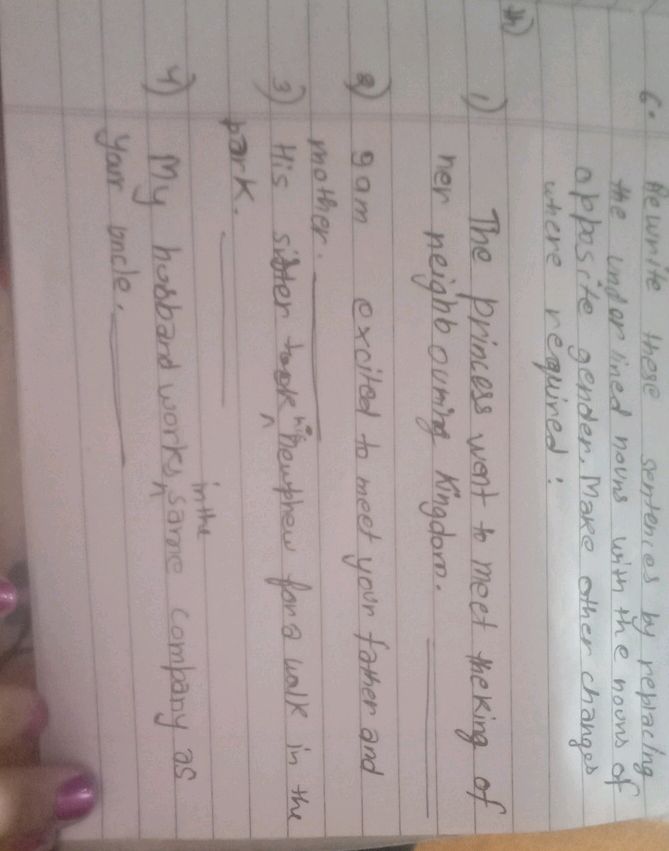 6. Rewrite these sentences by replacing
the underlined nouns with the nouns of
opposite gender. Make other changes
where required :
1) The princess went to meet the king of
her neighbouring kingdom.
2) I am excited to meet your father and
mother.
3) His sister took his newphew for a walk in the
park.
4) My husband works in the same company as
your uncle.